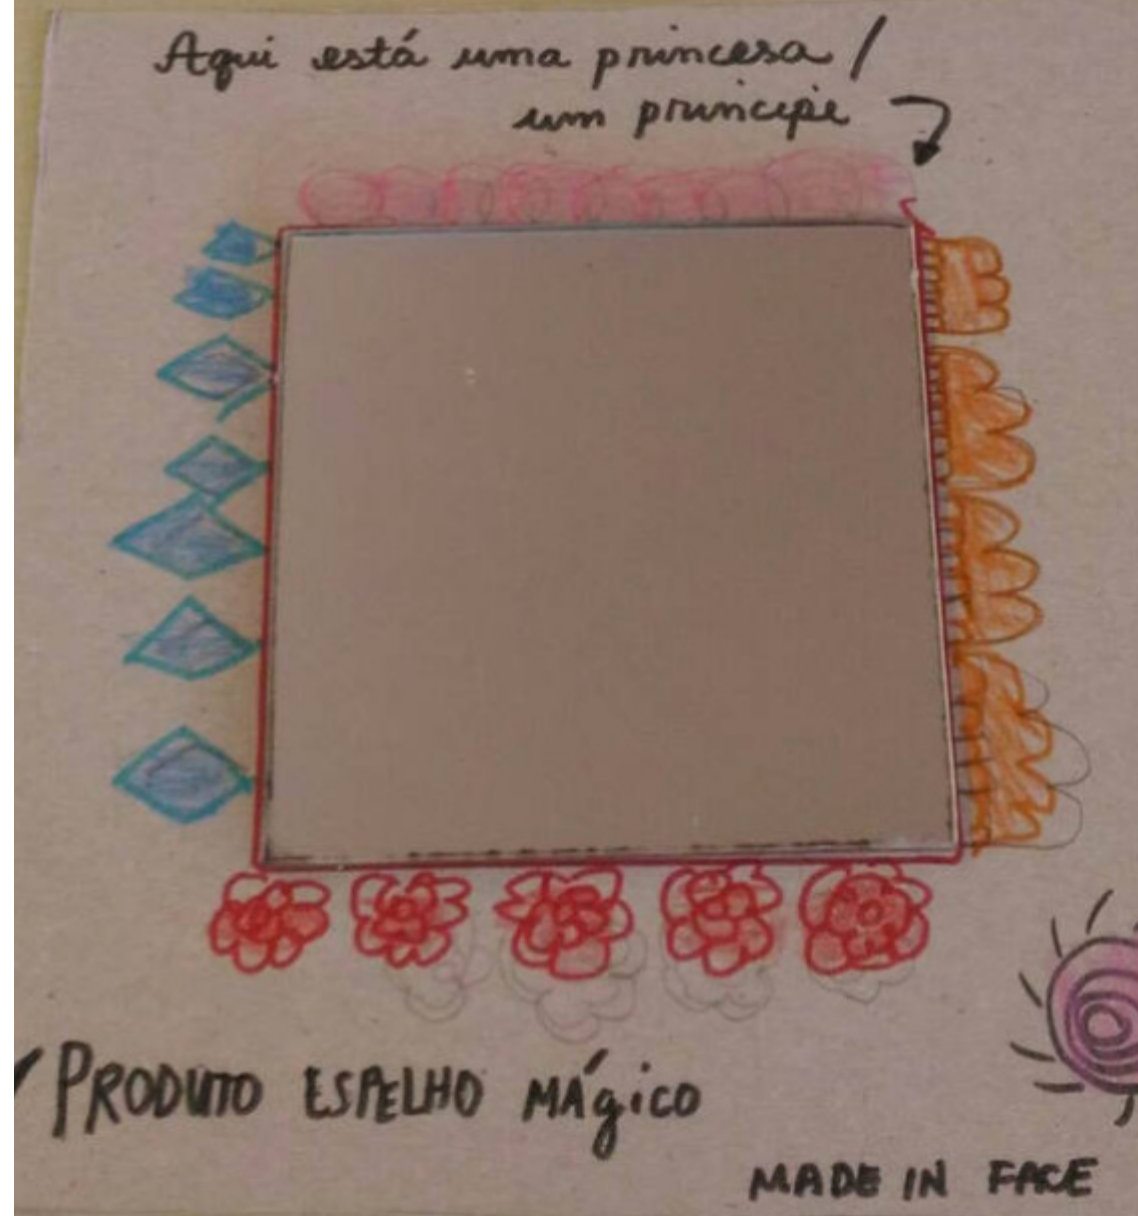 Aqui está uma princesa /
um principe
PRODUTO ESPELHO MÁgiCO
MADE IN FACE